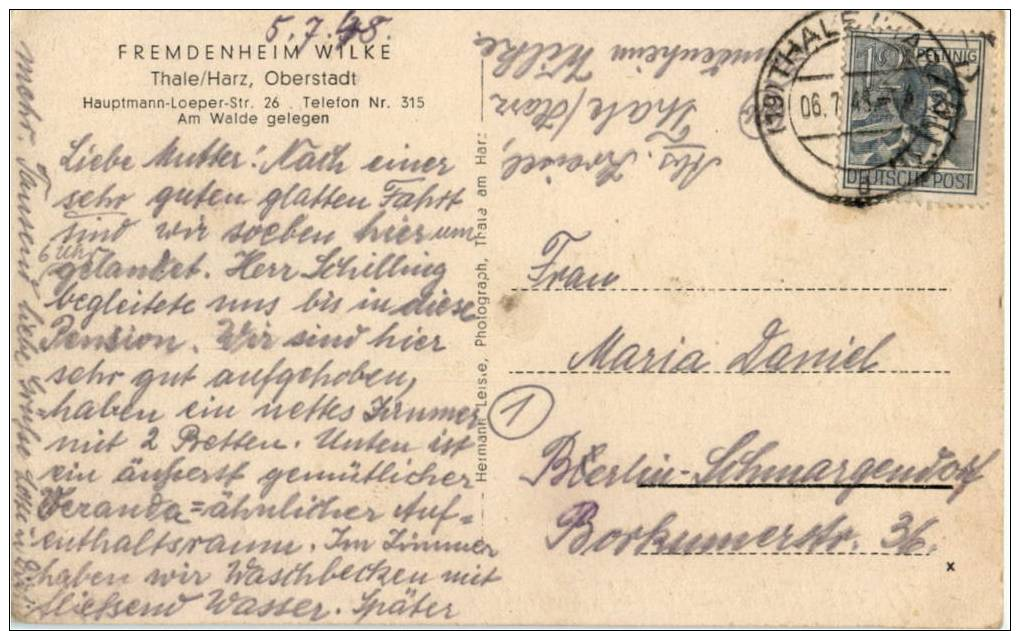 5.7.48.
FREMDENHEIM WILKE
Thale/Harz, Oberstadt
Hauptmann-Loeper-Str. 26 Telefon Nr. 315
Am Walde gelegen
Liebe Mutter! Nach einer
sehr guten glatten Fahrt
sind wir soeben hier um
6 Uhr
gelandet. Herr Schilling
begleitete uns bis in diese
Pension. Wir sind hier
sehr gut aufgehoben,
haben ein nettes Zimmer
mit 2 Betten. Unten ist
ein äußerst gemütlicher
Veranda=ähnlicher Auf=
enthaltsraum. Im Zimmer
haben wir Waschbecken mit
fließend Wasser. Später
mehr. Tausend liebe Grüße
Hermann Leiste, Photograph, Thale am Harz
Abs.
Thale/Harz
Fremdenheim Wilke
(19) THALE
06.7.48
PFENNIG
DEUTSCHE POST
Frau
Maria Daniel
1
Berlin-Schmargendorf
Borkumerstr. 36.
x